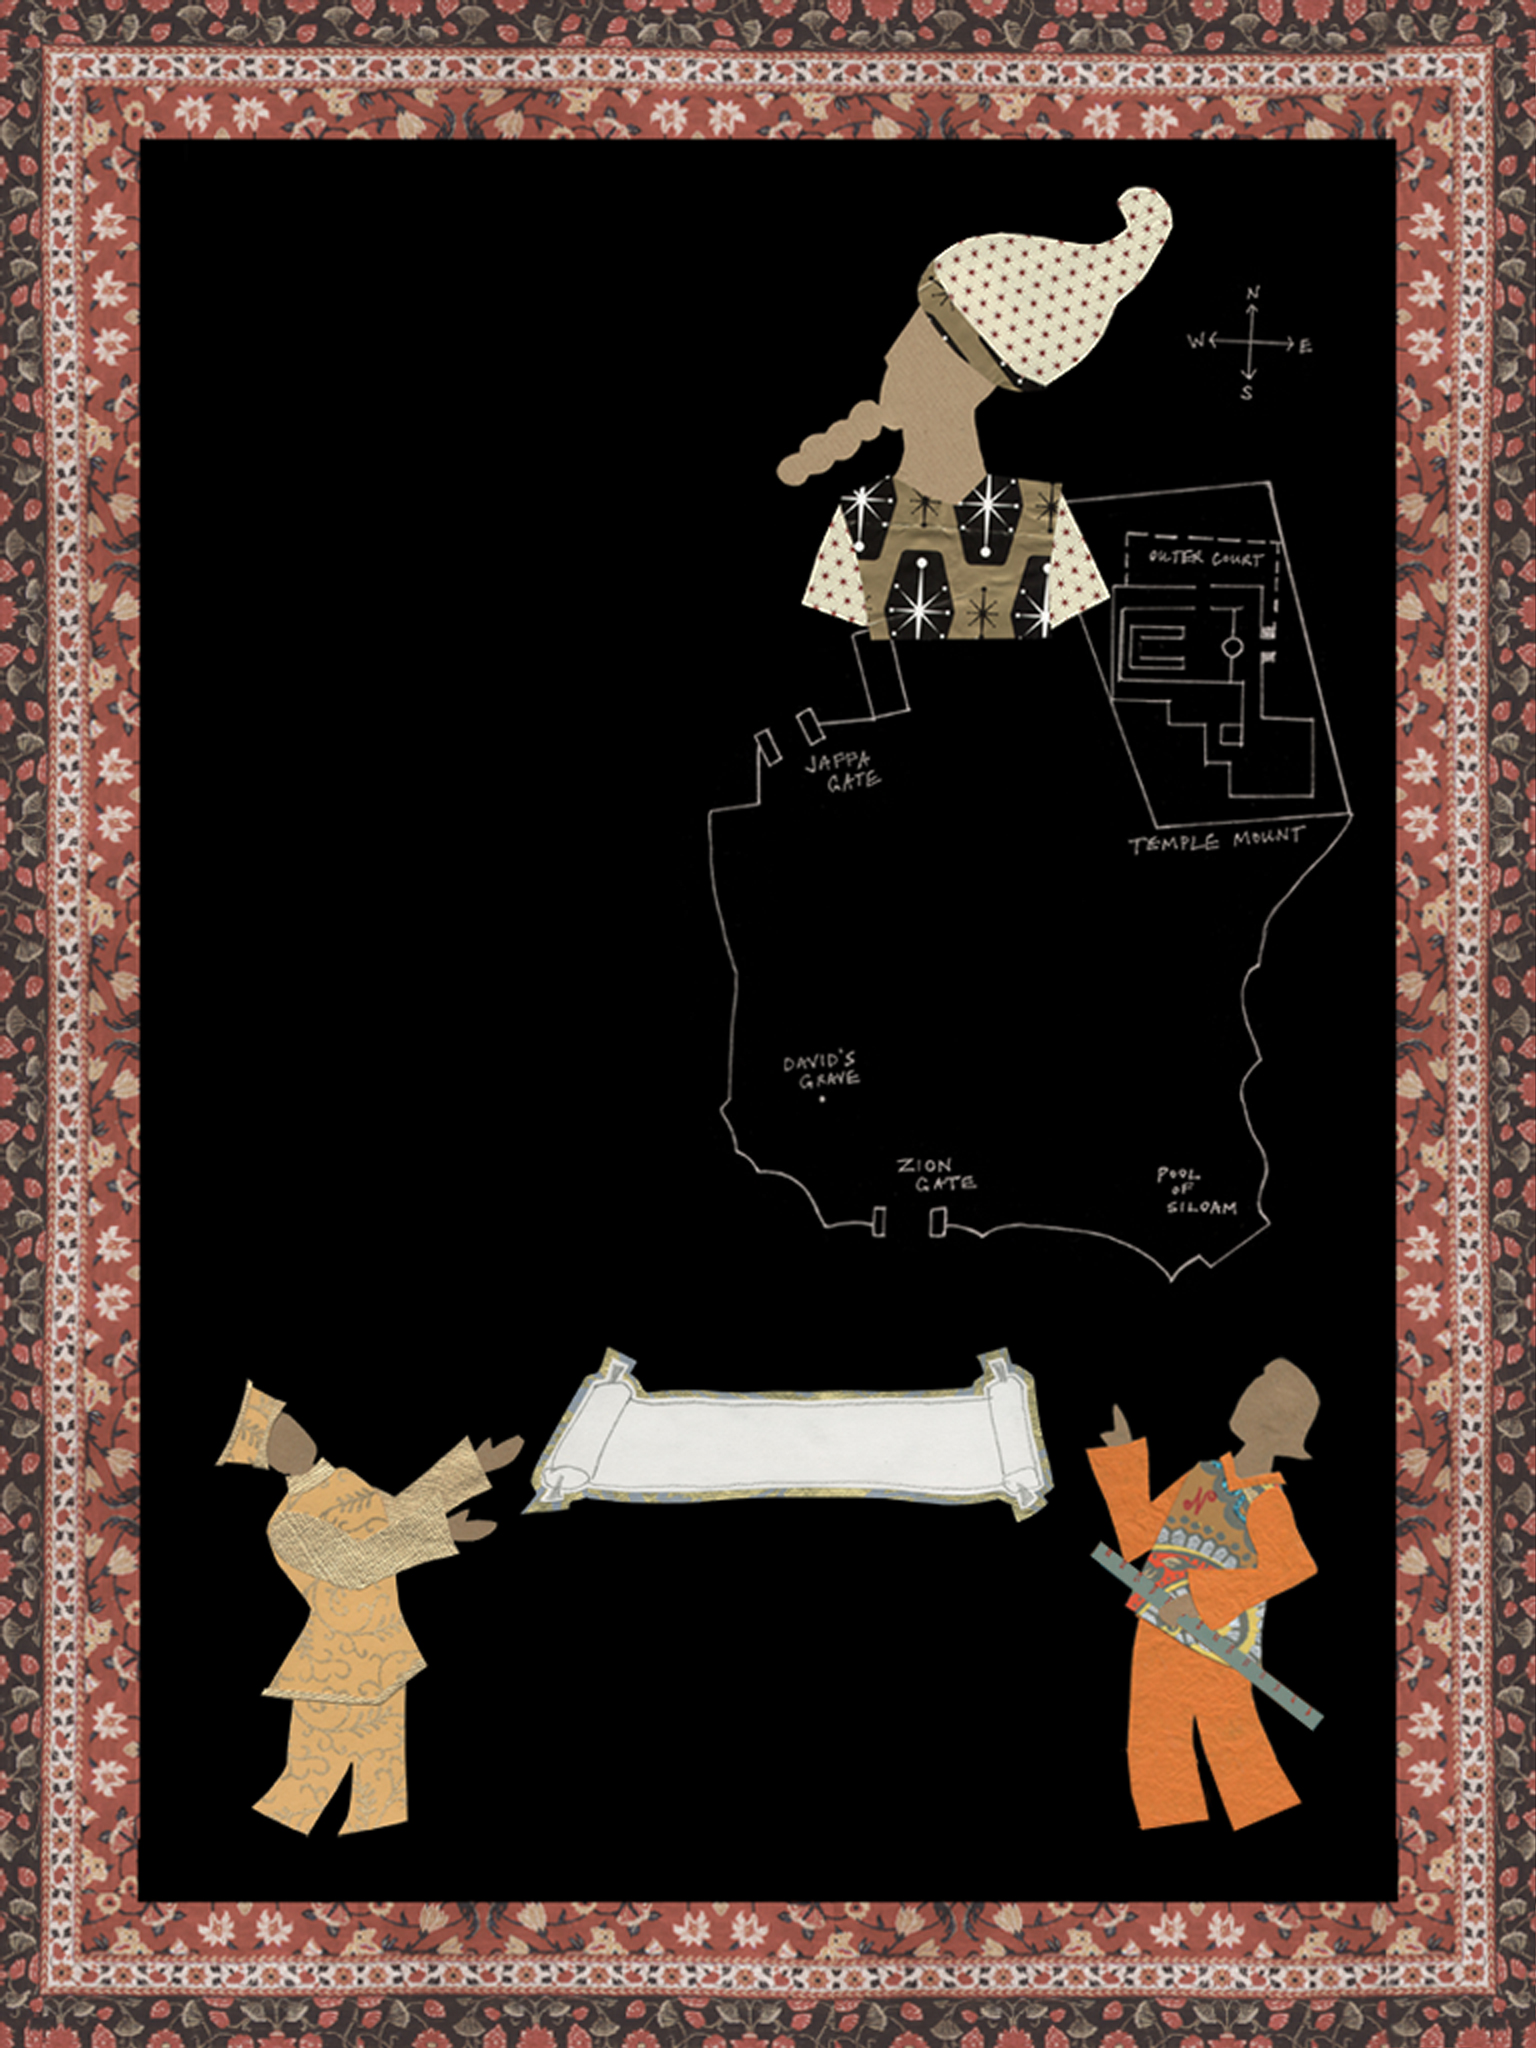 N
W E
S
OUTER COURT
JAFFA
GATE
TEMPLE MOUNT
DAVID'S
GRAVE
ZION
GATE
POOL
OF
SILOAM